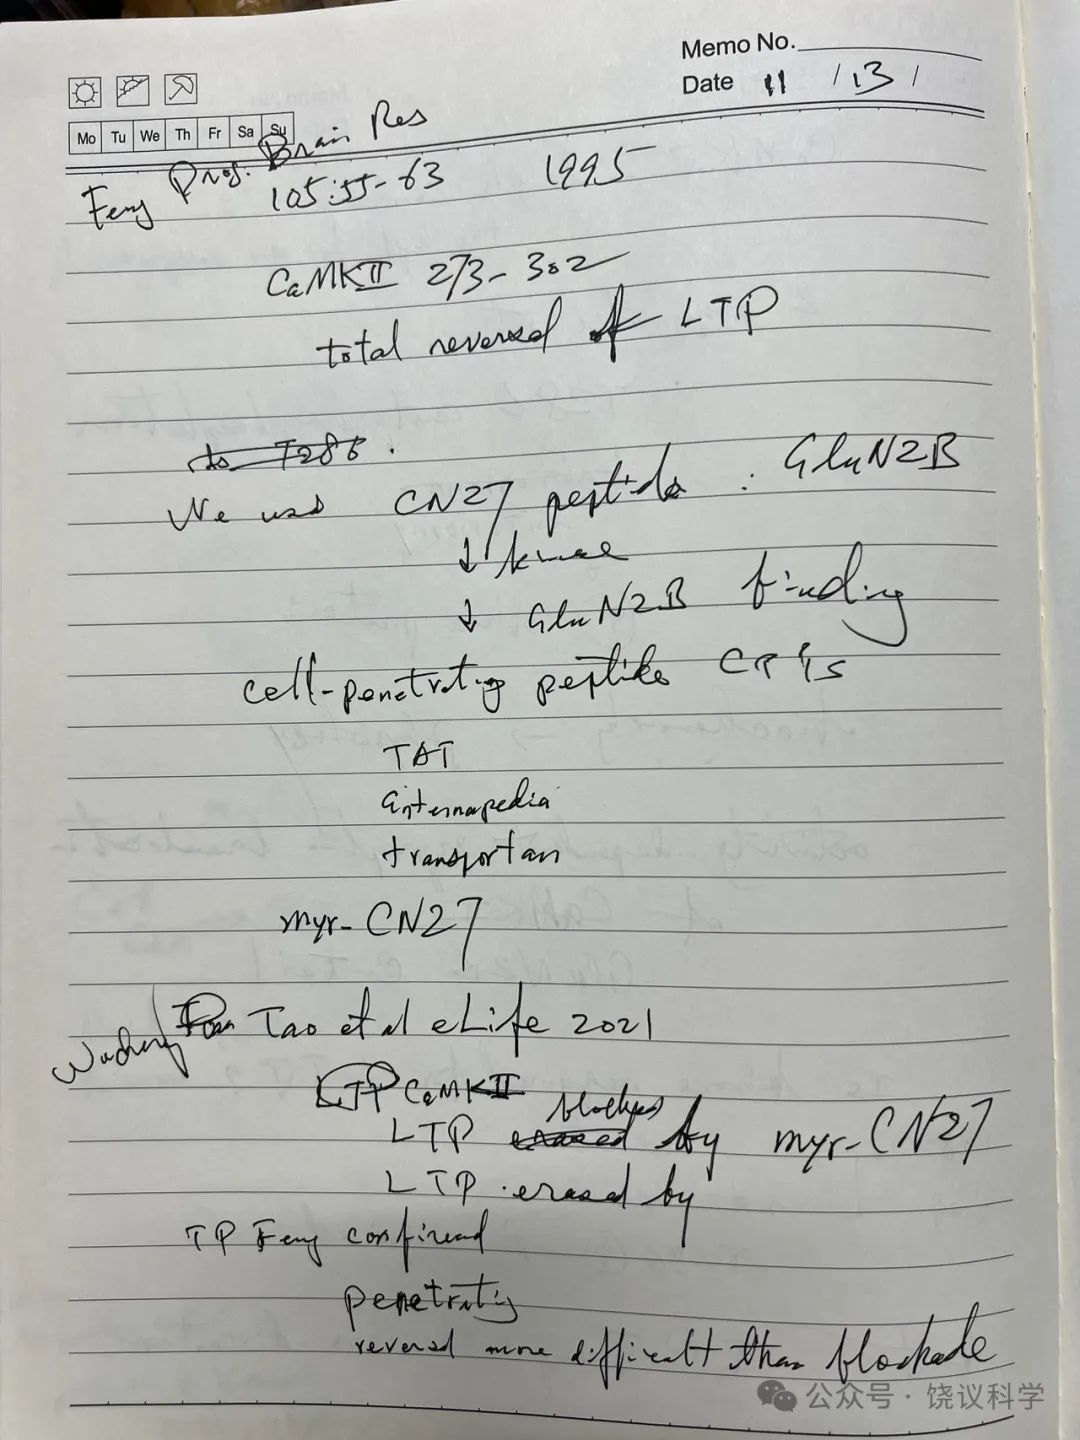 Memo No.
Date 11 / 13 /
Mo Tu We Th Fr Sa Su
Feng Prog. Brain Res
105:55-63 1995
CaMKII 273-302
total reversal of LTP
to T286.
We used CN27 peptide : GluN2B
↓ kinase
↓ GluN2B binding
cell-penetrating peptides CPPs
TAT
antennapedia
transportan
myr-CN27
Tao et al eLife 2021
LTP CaMKII
blocked
LTP erased by myr-CN27
LTP erased by
TP Feng confirmed
penetrating
reversal more difficult than blockade
公众号 · 饶议科学